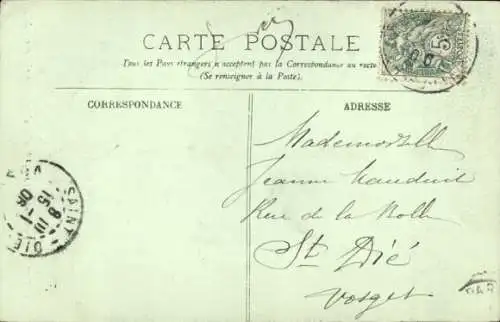 CARTE POSTALE
Tous les Pays étrangers n'acceptent pas la Correspondance au recto
(Se renseigner à la Poste).
CORRESPONDANCE
ADRESSE
Mademoiselle
Jeanne Mauduit
Rue de la Bolle
St Dié
Vosges
5c
SAINT-DIÉ